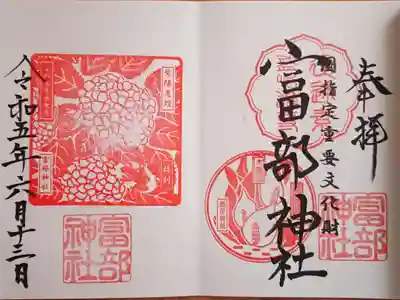 奉拝
国指定重要文化財
富部神社
富部神社
令和五年六月十三日
富部神社
特別